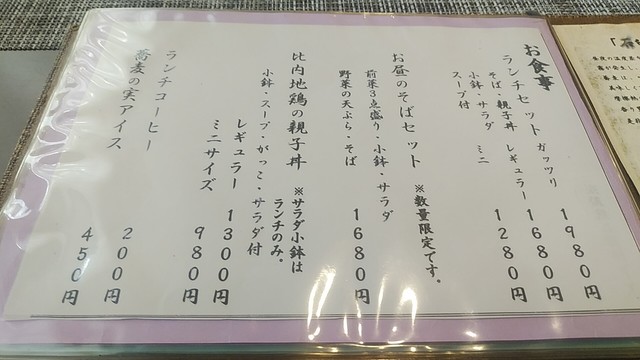 お食事
ランチセット ガッツリ 1980円
そば・親子丼 レギュラー 1680円
小鉢・サラダ ミニ 1280円
スープ付
お昼のそばセット ※数量限定です。
前菜3点盛り・小鉢・サラダ
野菜の天ぷら・そば 1680円
比内地鶏の親子丼 ※サラダ小鉢はランチのみ。
小鉢・スープ・がっこ・サラダ付
レギュラー 1300円
ミニサイズ 980円
ランチコーヒー 200円
蕎麦の実アイス 450円